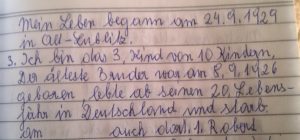 Mein Leben begann am 24.9.1929
in Alt-Lublitz.
3. Ich bin das 3. Kind von 10 Kindern,
Der älteste Bruder war am 8.9.1926
geboren, lebte ab seinen 20 Lebens-
jahr in Deutschland und starb
auch dort. 1. Robert